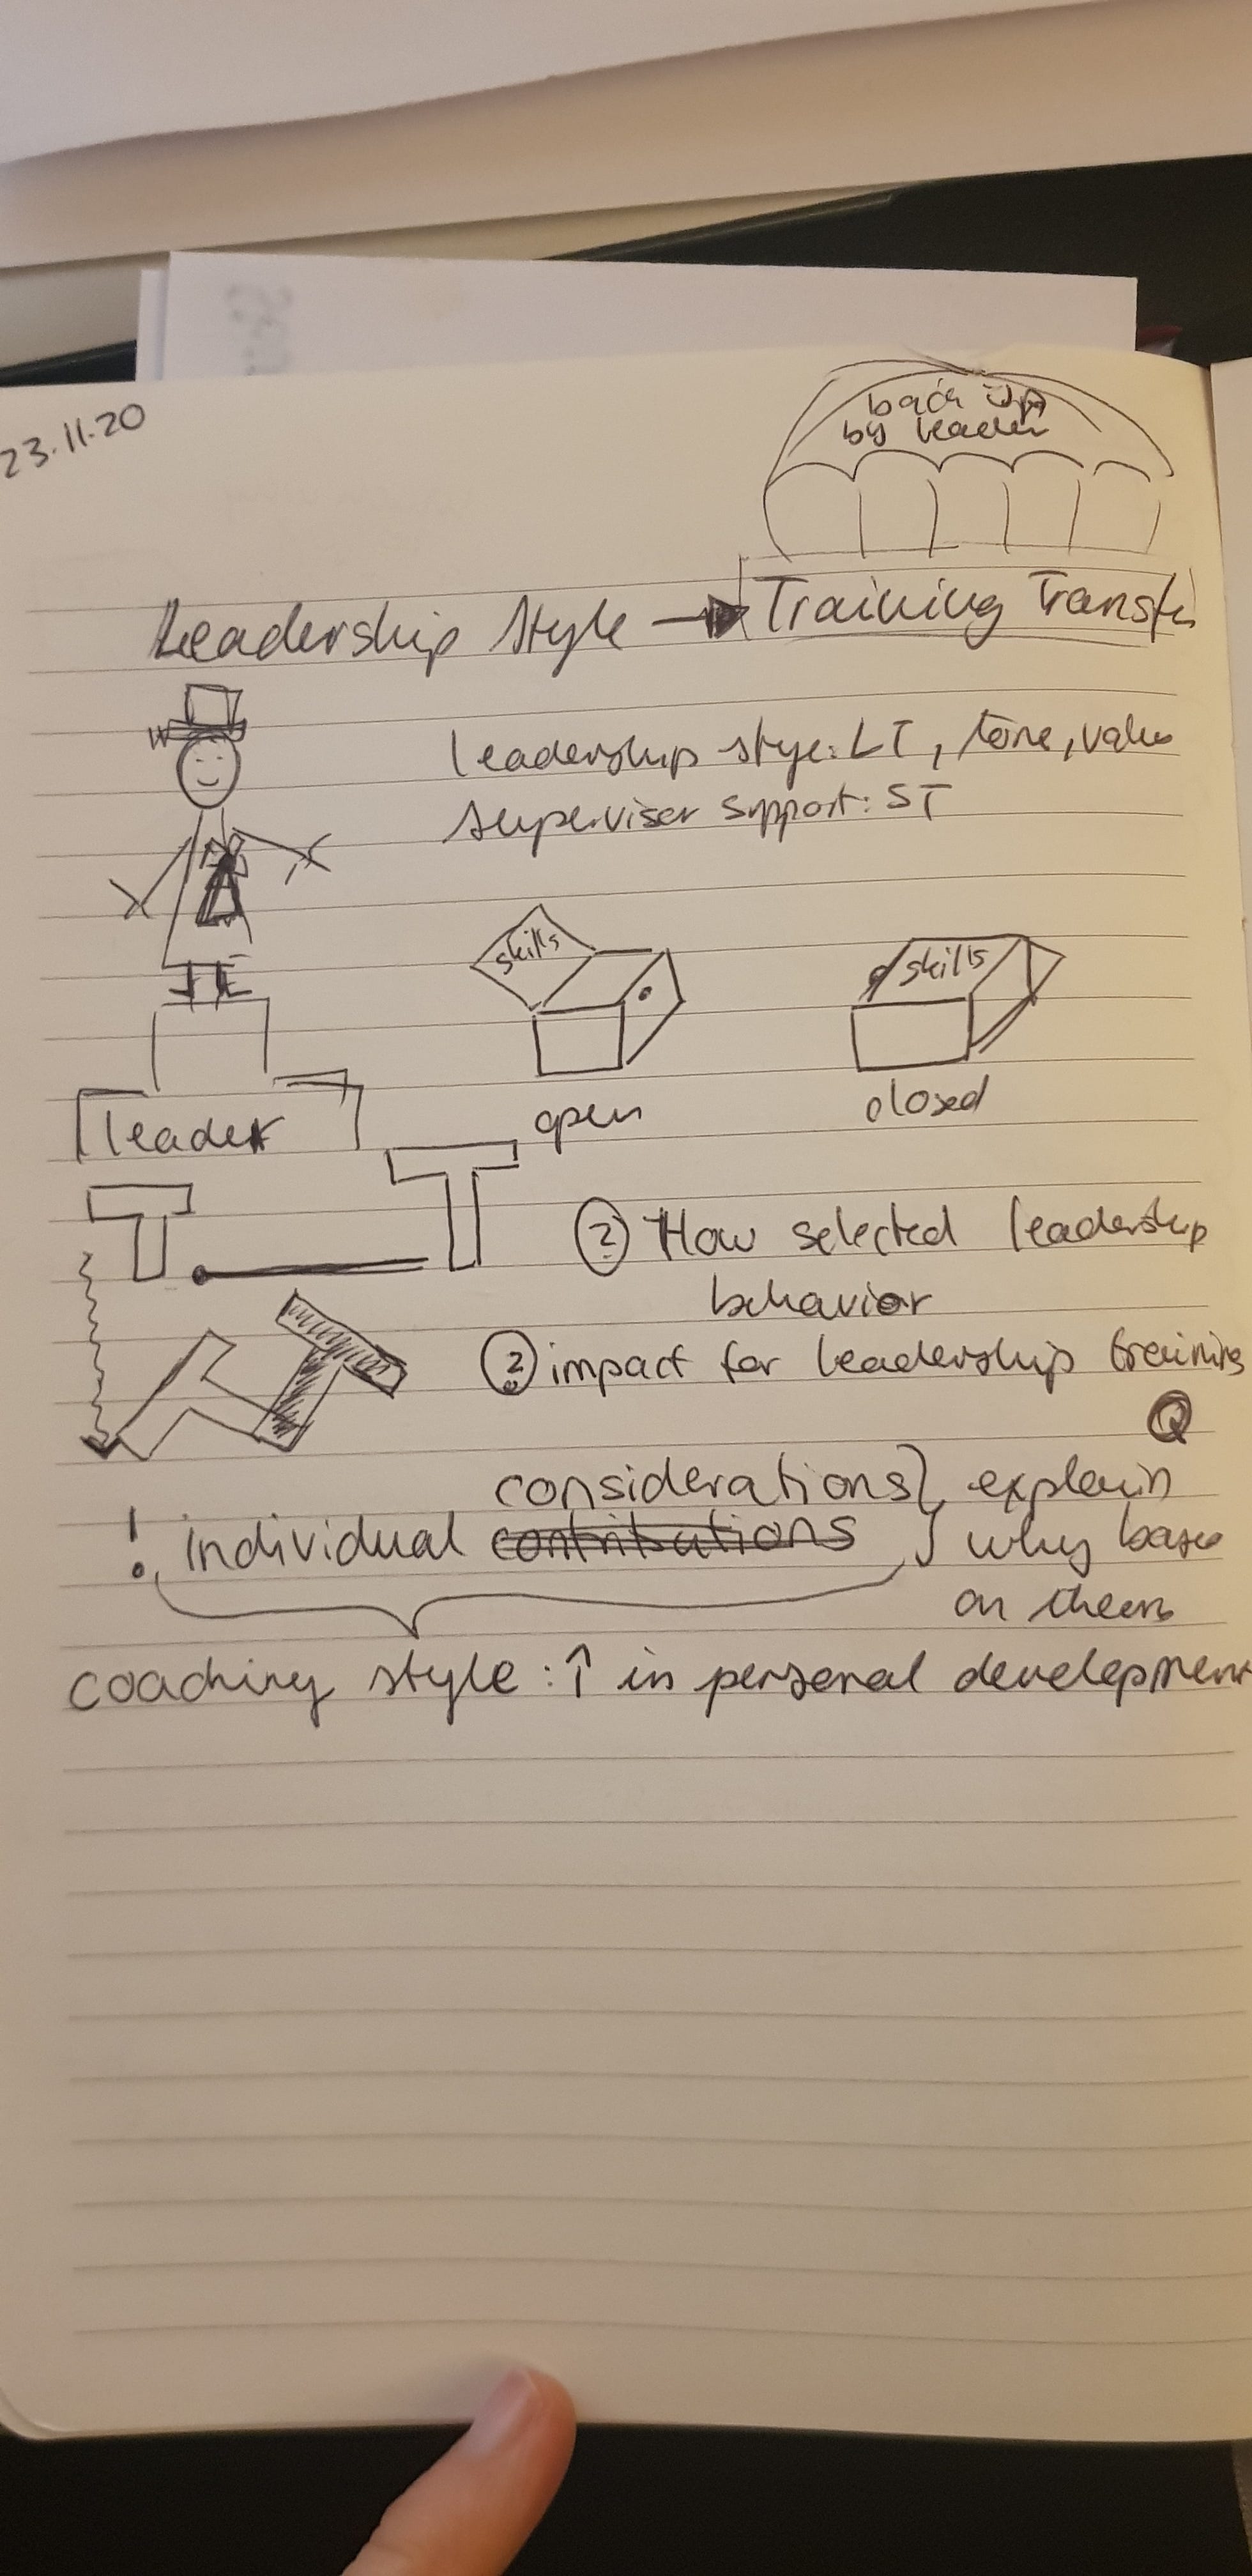 23.11.20
back up
by leader
Leadership Style → Training Transfe
leadership stye: LT, tone, value
superviser support: ST
skills
skills
open
closed
leader
T T
? How selected leadership
behavior
? impact for leadership training
Q
considerations } explain
! individual contributions } why base
on them
coaching style: ↑ in personal development